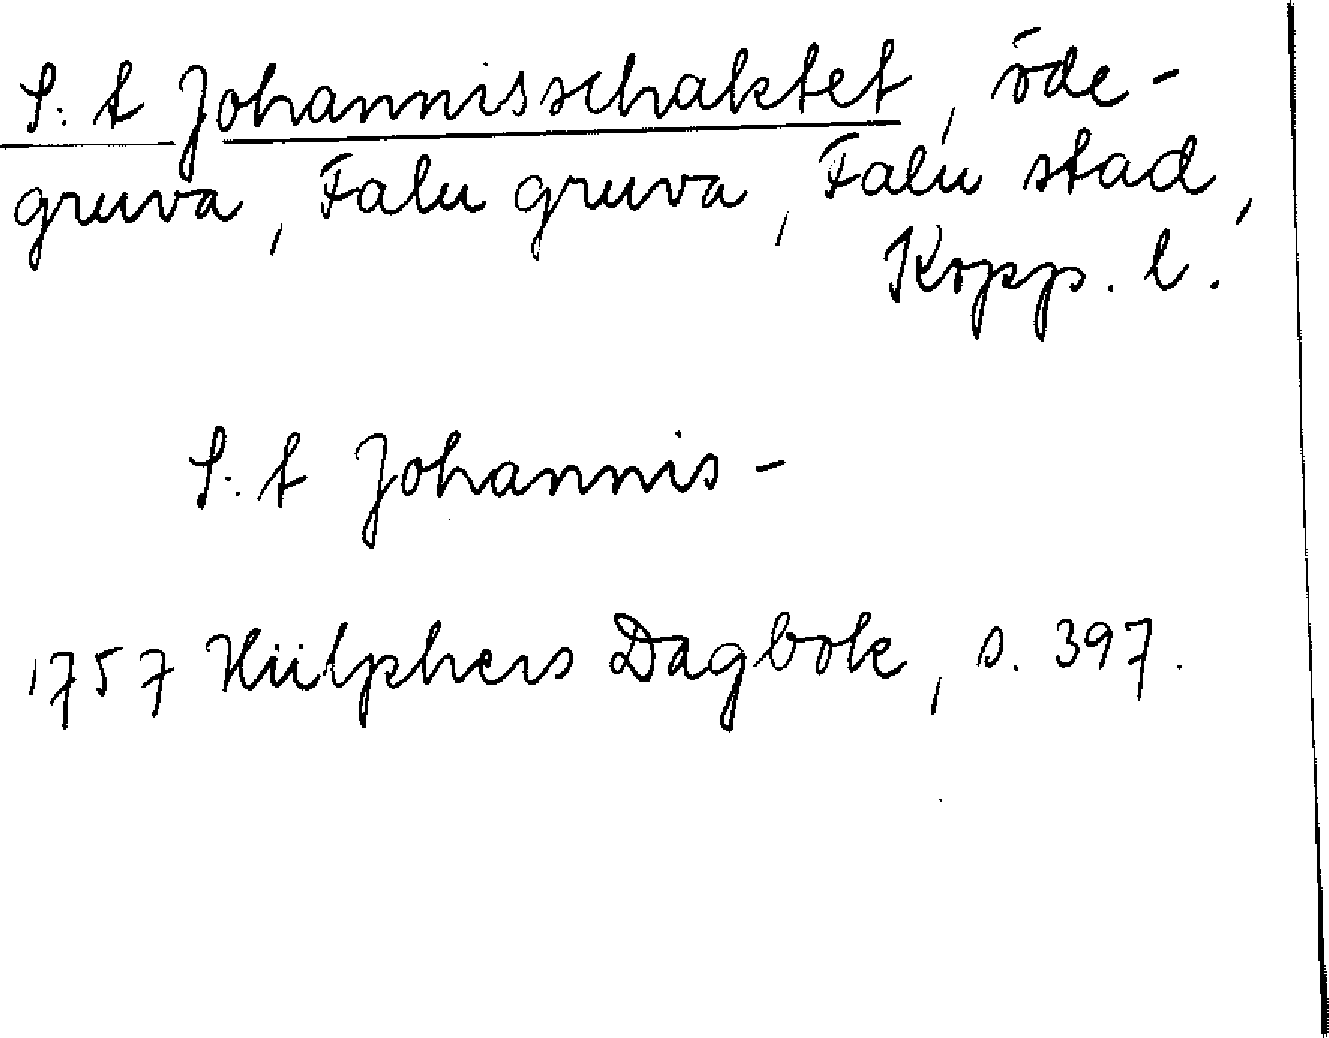 S:t Johannisschaktet, öde-
gruva, Falu gruva, Falu stad,
Kopp. l.
S:t Johannis-
1757 Hülphers Dagbok, s. 397.